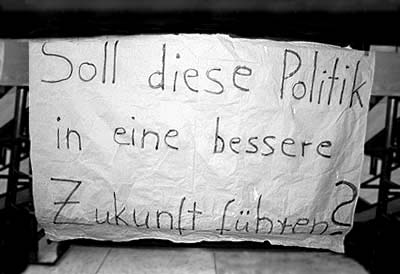 Soll diese Politik
in eine bessere
Zukunft führen?